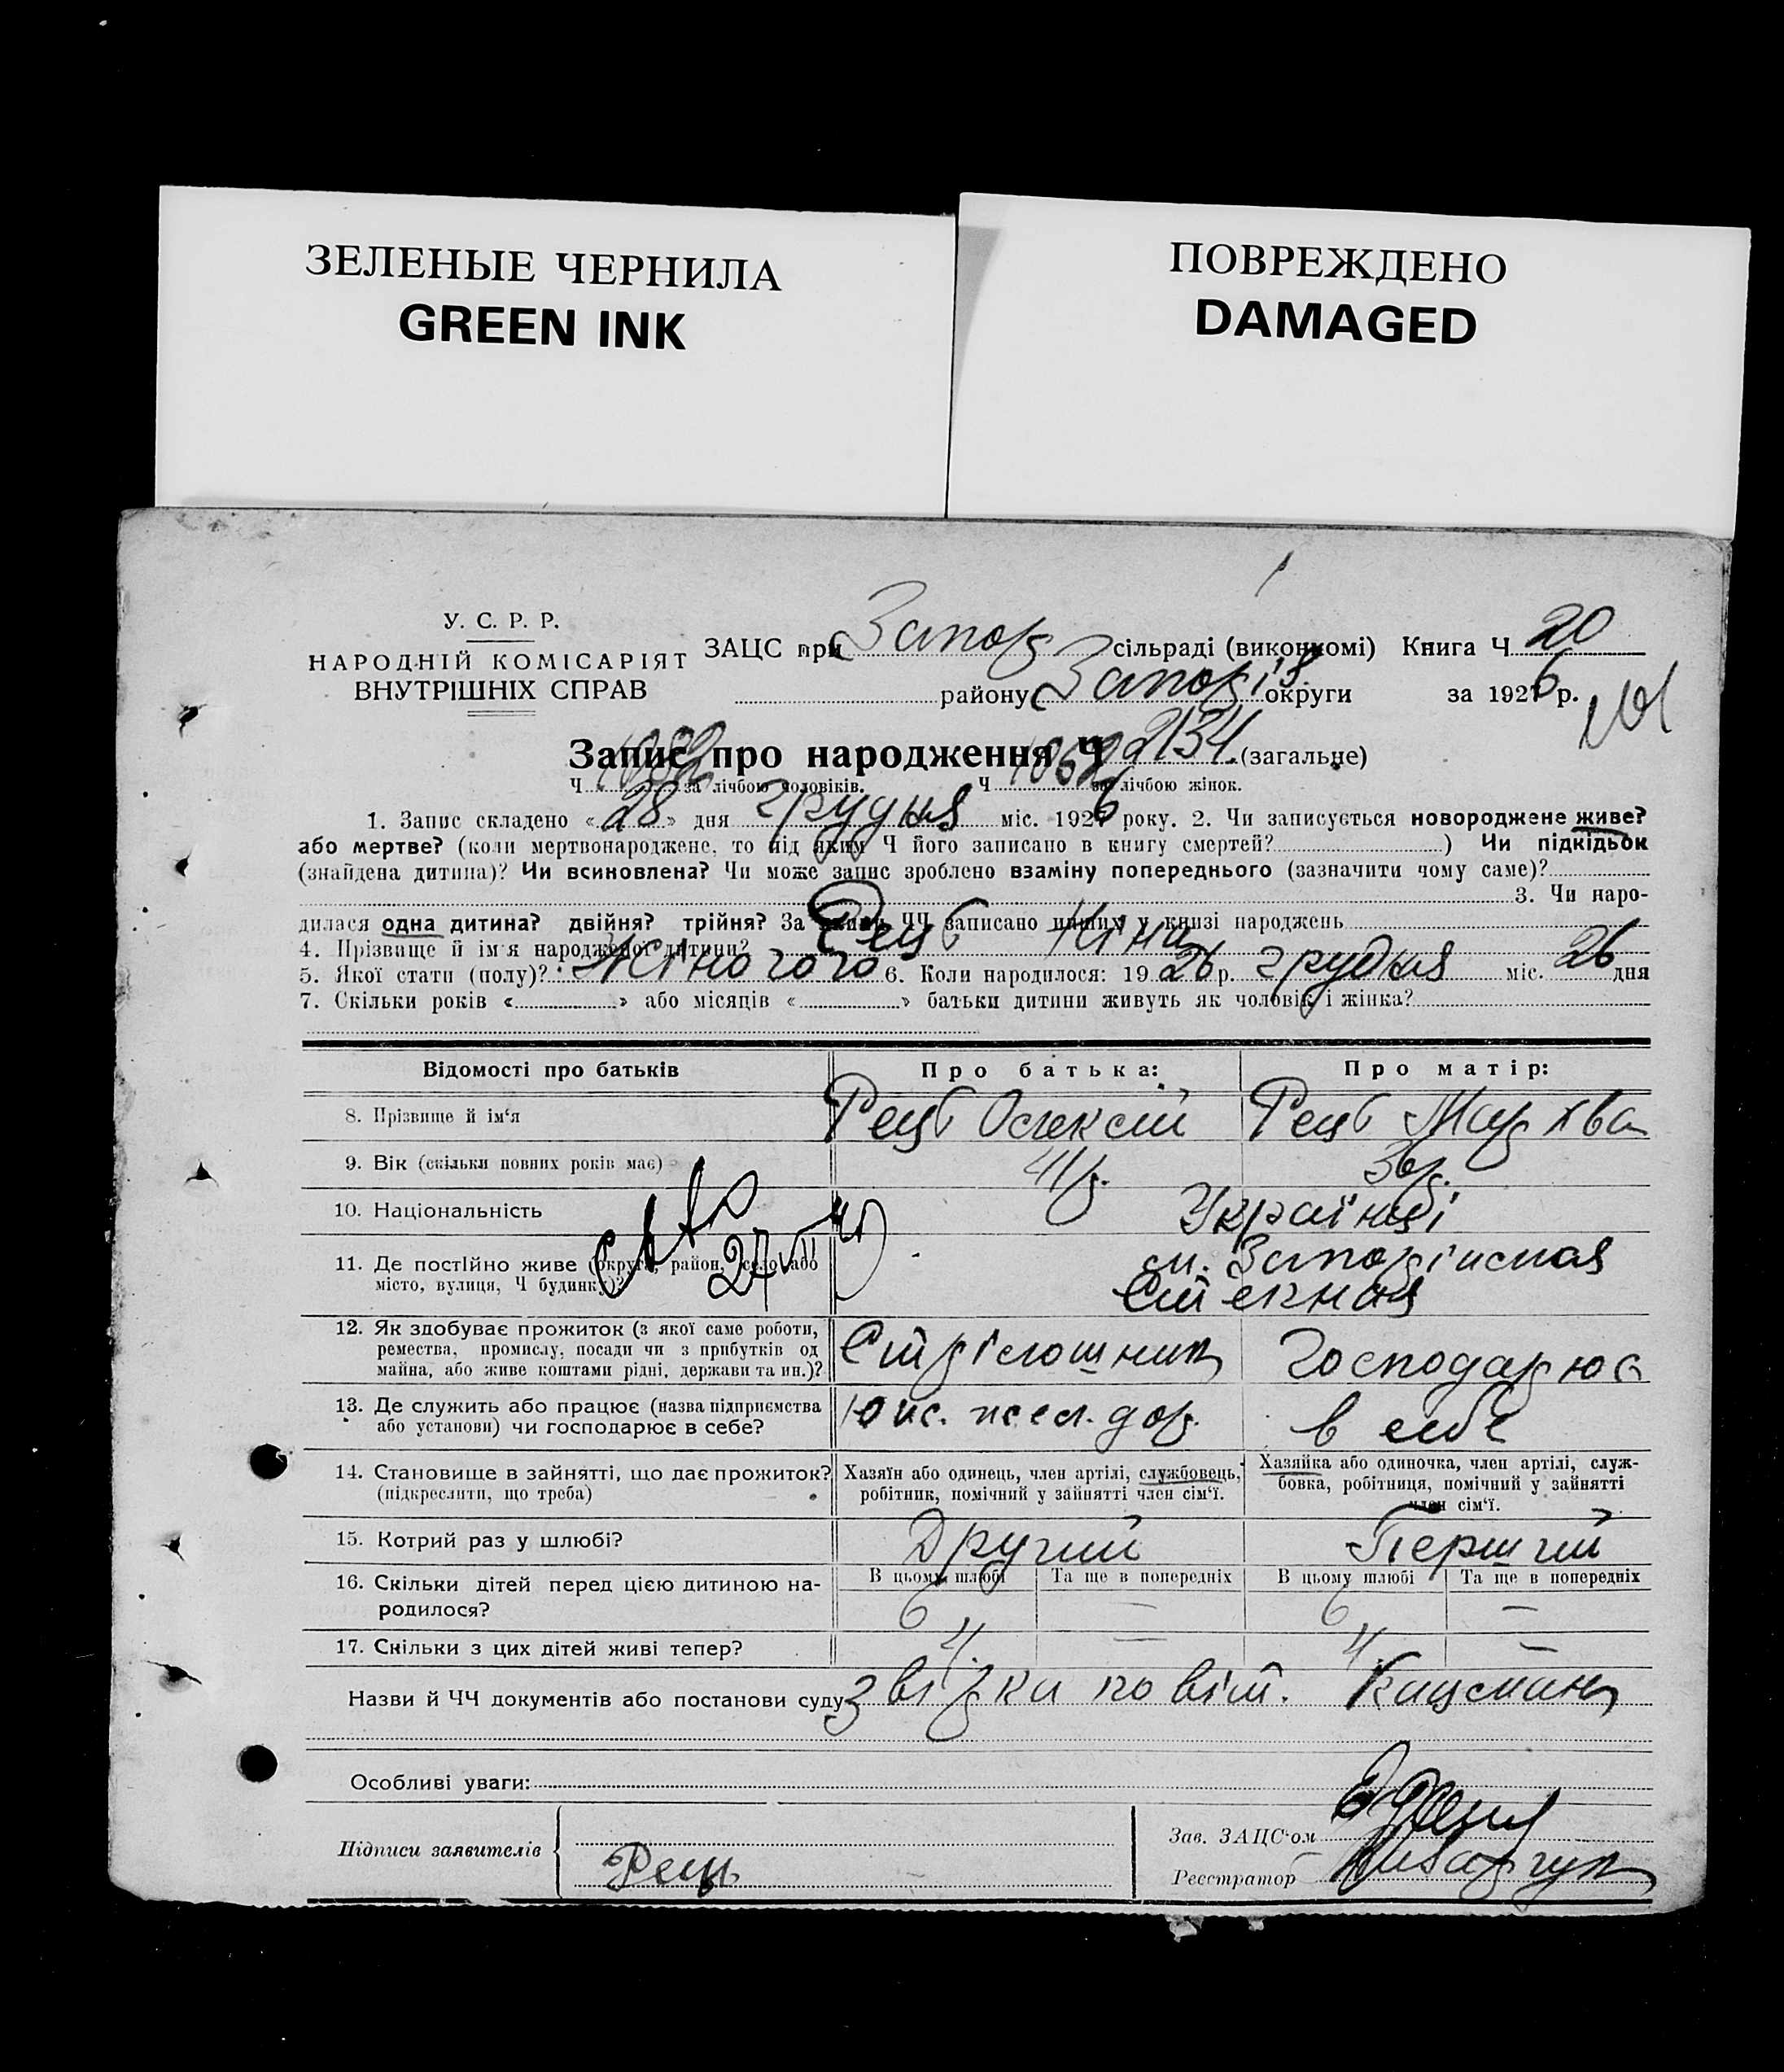 ЗЕЛЕНЫЕ ЧЕРНИЛА
GREEN INK
ПОВРЕЖДЕНО
DAMAGED
У. С. Р. Р.
НАРОДНІЙ КОМІСАРІЯТ
ВНУТРІШНІХ СПРАВ
ЗАЦС при Запор сільраді (виконкомі) Книга Ч 20
району Запоріз округи за 1926 р.
Запис про народження Ч 2134 (загальне)
Ч 1082 за лічбою чоловіків. Ч 1052 за лічбою жінок.
1. Запис складено «28» дня грудня міс. 1926 року. 2. Чи записується новороджене живе?
або мертве? (коли мертвонароджене, то під яким Ч його записано в книгу смертей? ) Чи підкідьок
(знайдена дитина)? Чи всиновлена? Чи може запис зроблено взаміну попереднього (зазначити чому саме)?
3. Чи наро-
дилася одна дитина? двійня? трійня? За якими ЧЧ записано инших у книзі народжень
4. Прізвище й ім'я народженої дитини? Рець Ніна
5. Якої стати (полу)? Жіночого 6. Коли народилося: 1926 р. грудня міс. 26 дня
7. Скільки років « » або місяців « » батьки дитини живуть як чоловік і жінка?
Відомості про батьків Про батька: Про матір:
8. Прізвище й ім'я Рець Олексій Рець Мархва
9. Вік (скільки повних років має) 41 р. 36 р.
10. Національність Українці
27 VII
11. Де постійно живе (округа, район, село або м. Запоріжжя
місто, вулиця, Ч будинку)?
12. Як здобуває прожиток (з якої саме роботи, Стрілошник Господарює
ремества, промислу, посади чи з прибутків од
майна, або живе коштами рідні, держави та ин.)?
13. Де служить або працює (назва підприємства в себе
або установи) чи господарює в себе?
14. Становище в зайнятті, що дає прожиток? Хазяїн або одинець, член артілі, службовець, Хазяйка або одиночка, член артілі, служ-
(підкреслити, що треба) робітник, помічний у зайнятті член сім'ї. бовка, робітниця, помічний у зайнятті
член сім'ї.
15. Котрий раз у шлюбі? Другий Перший
16. Скільки дітей перед цією дитиною на- В цьому шлюбі Та ще в попередніх В цьому шлюбі Та ще в попередніх
родилося? 6 — 6 —
17. Скільки з цих дітей живі тепер? 4. — 4. —
Назви й ЧЧ документів або постанови суду
Особливі уваги:
Підписи заявителів Рець
Зав. ЗАЦС'ом
Реєстратор